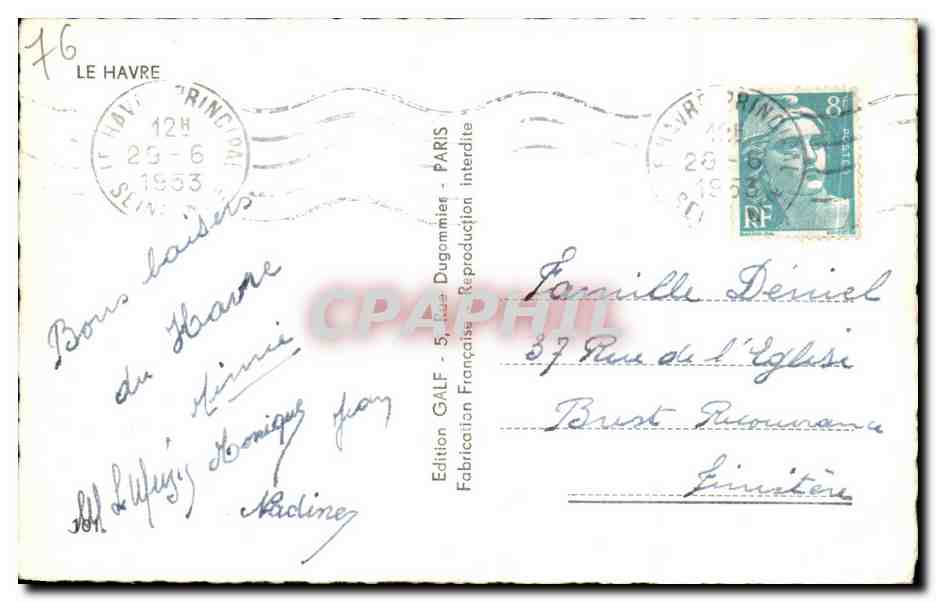 76
LE HAVRE
LE HAVRE PRINCIPAL
12H
20-6
1953
SEINE
8f
POSTES
RF
Bons baisers
du Havre
Mimie
Monique
Jean
Nadine
Edition GALF - 5, Rue Dugommier - PARIS
Fabrication Française - Reproduction interdite
CPAPHIL
Famille Déniel
37 Rue de l'Eglise
Brest Recouvrance
Finistère